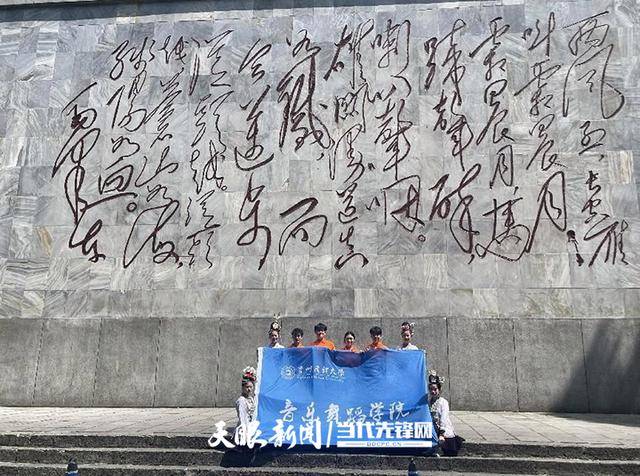 西风烈,长空雁
叫霜晨月。
霜晨月,马
蹄声碎,
喇叭声咽。
雄关漫道真
如铁,而
今迈步
从头越。从头
越,苍山如海,
残阳如血。
毛泽东
贵州民族大学
音乐舞蹈学院
天眼新闻 当代先锋网
DDCPC.CN